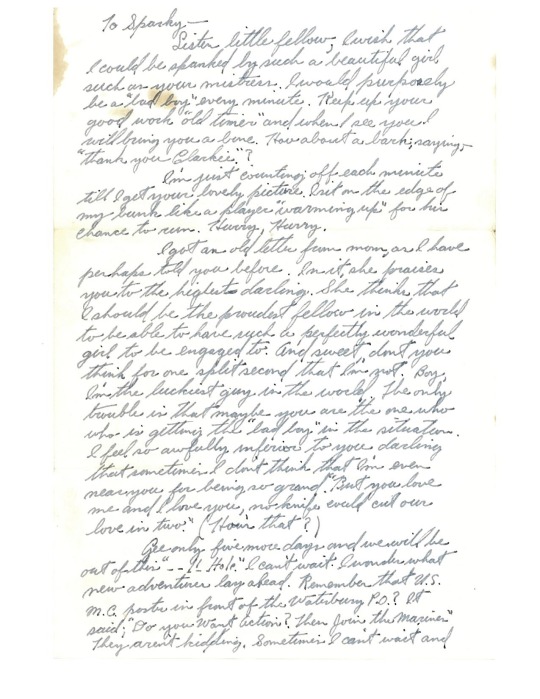 To Sparky —
Listen little fellow, I wish that
I could be spanked by such a beautiful girl
such as your mistress. I would purposely
be a "bad boy" every minute. Keep up your
good work "old timer" and when I see you I
will bring you a bone. How about a bark, saying,
"thank you Clarkie"?
I'm just counting off each minute
till I get your lovely picture. I sit on the edge of
my bunk like a player "warming up" for his
chance to run. Hurry, Hurry.
I got an old letter from mom, as I have
perhaps told you before. In it, she praises
you to the highest darling. She thinks that
I should be the proudest fellow in the world
to be able to have such a perfectly wonderful
girl to be engaged to. And sweet, dont you
think for one split second that I'm not. Boy,
I'm the luckiest guy in the world. The only
trouble is that maybe you are the one who
who is getting the "bad boy" in the situation.
I feel so awfully inferior to you darling
that sometimes I don't think that I'm even
near you for being so grand. "But you love
me and I love you, no knife could cut our
love in two." (How's that?)
Gee only five more days and we will be
out of this " - - !! Hole." I can't wait. I wonder what
new adventures lay ahead. Remember that U.S.
M.C. poster in front of the Waterbury P.O.? It
said, "Do you Want Action? Then Join the Marines"
They aren't kidding. Sometimes I can't wait and